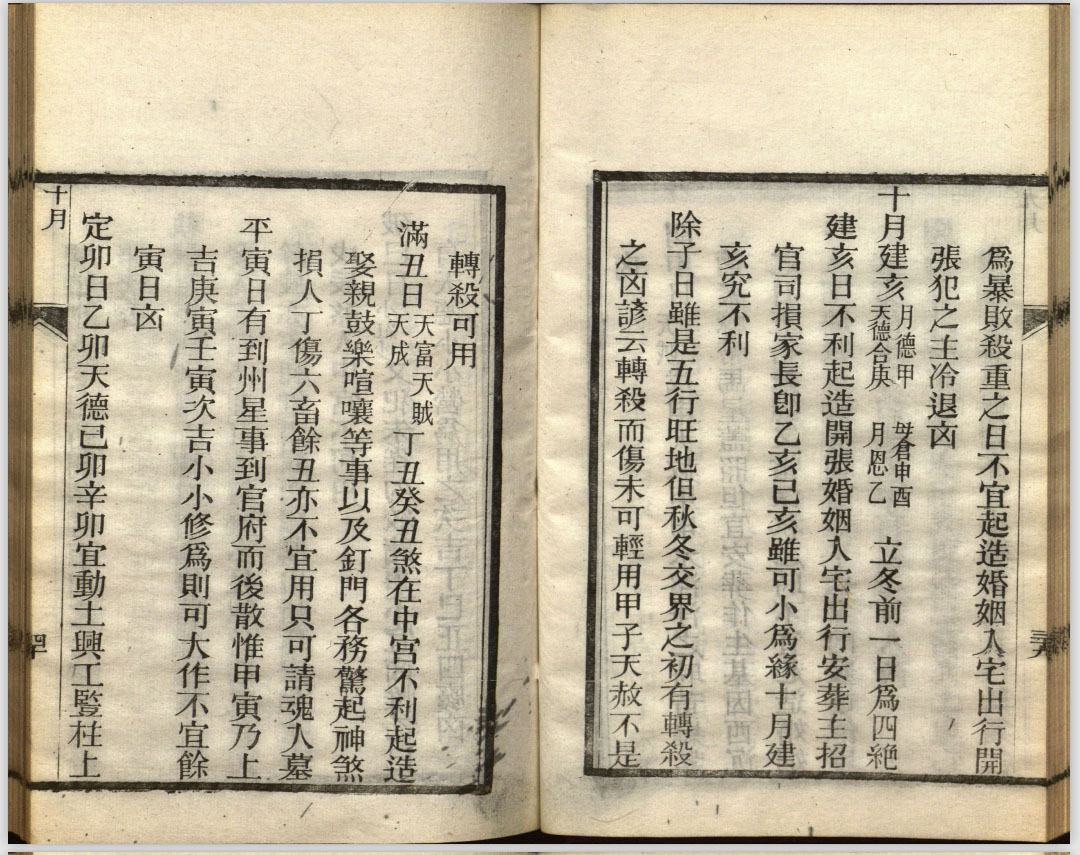 爲暴敗殺重之日不宜起造婚姻入宅出行開
張犯之主冷退凶
十月建亥 月德甲 天德合庚 母倉申酉 月恩乙 立冬前一日爲四絶
建亥日不利起造開張婚姻入宅出行安葬主招
官司損家長卽乙亥己亥雖可小爲緣十月建
亥究不利
除子日雖是五行旺地但秋冬交界之初有轉殺
之凶諺云轉殺而傷未可輕用甲子天赦不是
轉殺可用
滿丑日 天富天賊 天成 丁丑癸丑煞在中宮不利起造
娶親鼓樂喧嚷等事以及釘門各務驚起神煞
損人丁傷六畜餘丑亦不宜用只可請魂入墓
平寅日有到州星事到官府而後散惟甲寅乃上
吉庚寅壬寅次吉小小修爲則可大作不宜餘
寅日凶
定卯日乙卯天德已卯辛卯宜動土興工豎柱上
十月